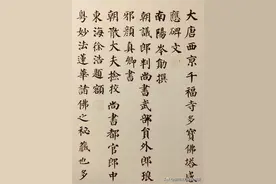 大唐西京千福寺多寶佛塔感
應碑文
南陽岑勛撰
朝議郎判尚書武部員外郎琅
邪顏真卿書
朝散大夫撿校尚書都官郎中
東海徐浩題額
粵妙法蓮華諸佛之秘藏也多